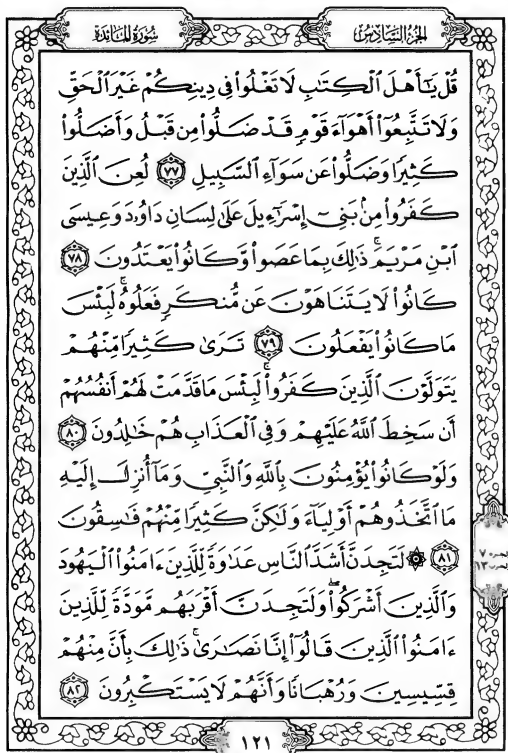 سُورَةُ المَائدَة
الجُزْءُ السَّادِسُ
قُلْ يَٰٓأَهْلَ ٱلْكِتَٰبِ لَا تَغْلُوا۟ فِى دِينِكُمْ غَيْرَ ٱلْحَقِّ
وَلَا تَتَّبِعُوٓا۟ أَهْوَآءَ قَوْمٍ قَدْ ضَلُّوا۟ مِن قَبْلُ وَأَضَلُّوا۟
كَثِيرًا وَضَلُّوا۟ عَن سَوَآءِ ٱلسَّبِيلِ ٧٧ لُعِنَ ٱلَّذِينَ
كَفَرُوا۟ مِنۢ بَنِىٓ إِسْرَٰٓءِيلَ عَلَىٰ لِسَانِ دَاوُۥدَ وَعِيسَى
ٱبْنِ مَرْيَمَ ۚ ذَٰلِكَ بِمَا عَصَوا۟ وَّكَانُوا۟ يَعْتَدُونَ ٧٨
كَانُوا۟ لَا يَتَنَاهَوْنَ عَن مُّنكَرٍ فَعَلُوهُ ۚ لَبِئْسَ
مَا كَانُوا۟ يَفْعَلُونَ ٧٩ تَرَىٰ كَثِيرًا مِّنْهُمْ
يَتَوَلَّوْنَ ٱلَّذِينَ كَفَرُوا۟ ۚ لَبِئْسَ مَا قَدَّمَتْ لَهُمْ أَنفُسُهُمْ
أَن سَخِطَ ٱللَّهُ عَلَيْهِمْ وَفِى ٱلْعَذَابِ هُمْ خَٰلِدُونَ ٨٠
وَلَوْ كَانُوا۟ يُؤْمِنُونَ بِٱللَّهِ وَٱلنَّبِىِّ وَمَآ أُنزِلَ إِلَيْهِ
مَا ٱتَّخَذُوهُمْ أَوْلِيَآءَ وَلَٰكِنَّ كَثِيرًا مِّنْهُمْ فَٰسِقُونَ
٨١ ۞ لَتَجِدَنَّ أَشَدَّ ٱلنَّاسِ عَدَٰوَةً لِّلَّذِينَ ءَامَنُوا۟ ٱلْيَهُودَ
وَٱلَّذِينَ أَشْرَكُوا۟ ۖ وَلَتَجِدَنَّ أَقْرَبَهُم مَّوَدَّةً لِّلَّذِينَ
ءَامَنُوا۟ ٱلَّذِينَ قَالُوٓا۟ إِنَّا نَصَٰرَىٰ ۚ ذَٰلِكَ بِأَنَّ مِنْهُمْ
قِسِّيسِينَ وَرُهْبَانًا وَأَنَّهُمْ لَا يَسْتَكْبِرُونَ ٨٢
٧
١٣
١٢١